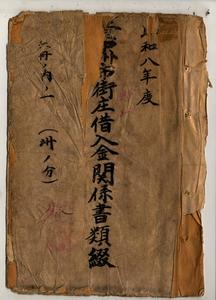 和八年度
市街庄借入金関係書類綴
冊ノ内ノ一
（州ノ分）